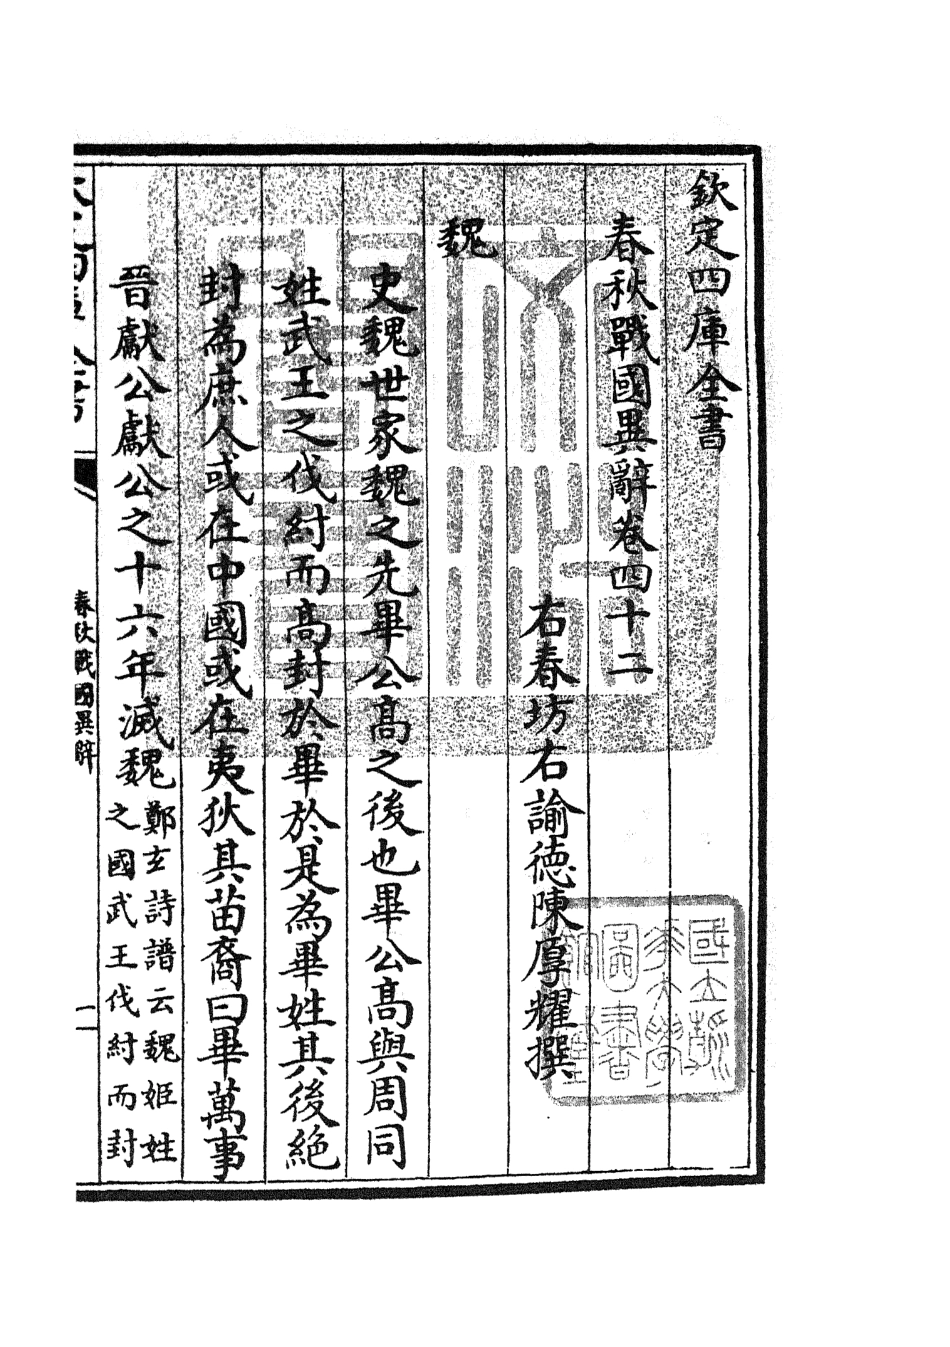 欽定四庫全書
春秋戰國異辭卷四十二
右春坊右諭德陳厚耀撰
魏
史魏世家魏之先畢公高之後也畢公高與周同
姓武王之伐紂而高封於畢於是為畢姓其後絶
封為庶人或在中國或在夷狄其苗裔曰畢萬事
晉獻公獻公之十六年滅魏鄭玄詩譜云魏姬姓
之國武王伐紂而封
春秋戰國異辭
一